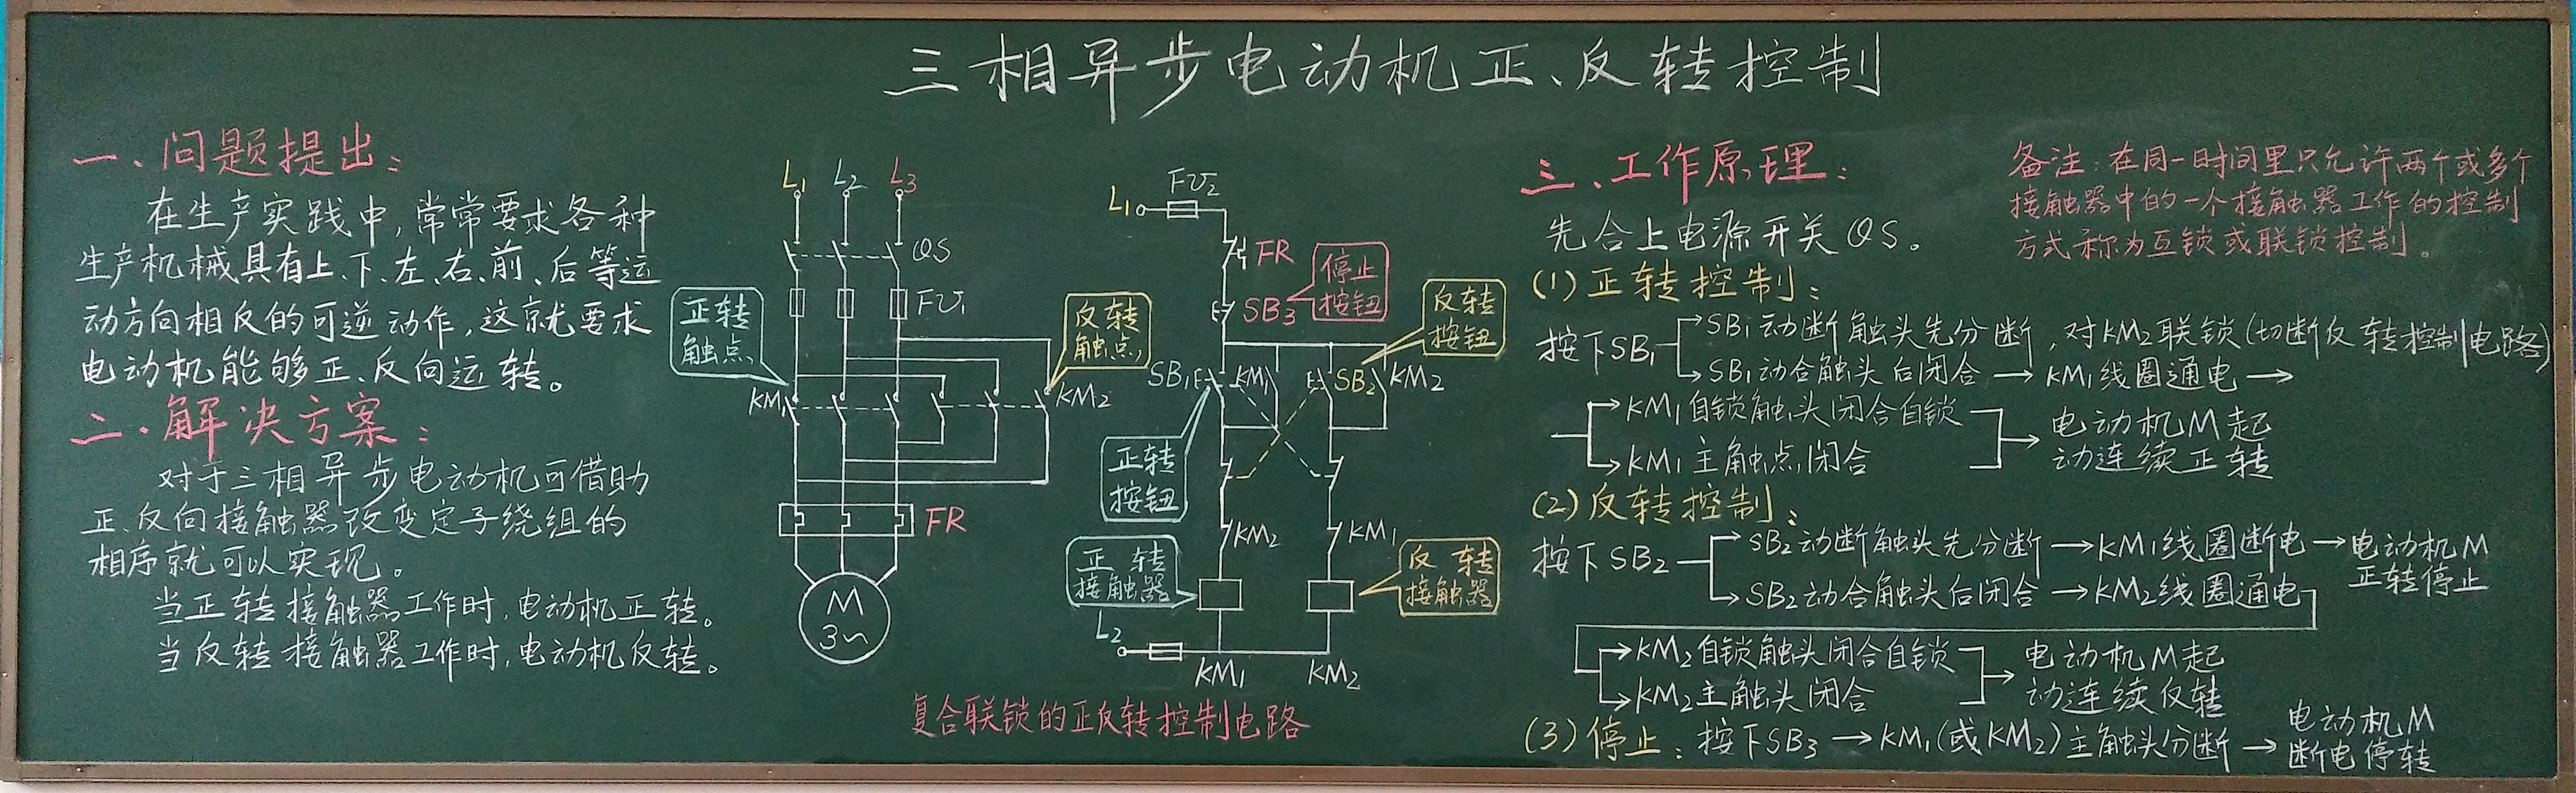 三相异步电动机正、反转控制
一、问题提出：
在生产实践中,常常要求各种
生产机械具有上、下、左、右、前、后等运
动方向相反的可逆动作,这就要求
电动机能够正、反向运转。
二、解决方案：
对于三相异步电动机可借助
正、反向接触器改变定子绕组的
相序就可以实现。
当正转接触器工作时,电动机正转。
当反转接触器工作时,电动机反转。
L1 L2 L3
QS
FU1
正转
触点
反转
触点
KM1
KM2
FR
M
3~
FU2
L1
FR
停止
按钮
SB3
反转
按钮
SB1 KM1 SB2 KM2
正转
按钮
KM2 KM1
正转
接触器
反转
接触器
L2
KM1 KM2
复合联锁的正反转控制电路
三、工作原理：
先合上电源开关QS。
(1)正转控制：
按下SB1
→SB1动断触头先分断,对KM2联锁(切断反转控制电路)
→SB1动合触头后闭合→KM1线圈通电→
→KM1自锁触头闭合自锁
→KM1主触点闭合
→电动机M起
动连续正转
(2)反转控制：
按下SB2
→SB2动断触头先分断→KM1线圈断电→电动机M
正转停止
→SB2动合触头后闭合→KM2线圈通电
→KM2自锁触头闭合自锁
→KM2主触头闭合
→电动机M起
动连续反转
(3)停止：按下SB3→KM1(或KM2)主触头分断→电动机M
断电停转
备注：在同一时间里只允许两个或多个
接触器中的一个接触器工作的控制
方式称为互锁或联锁控制。